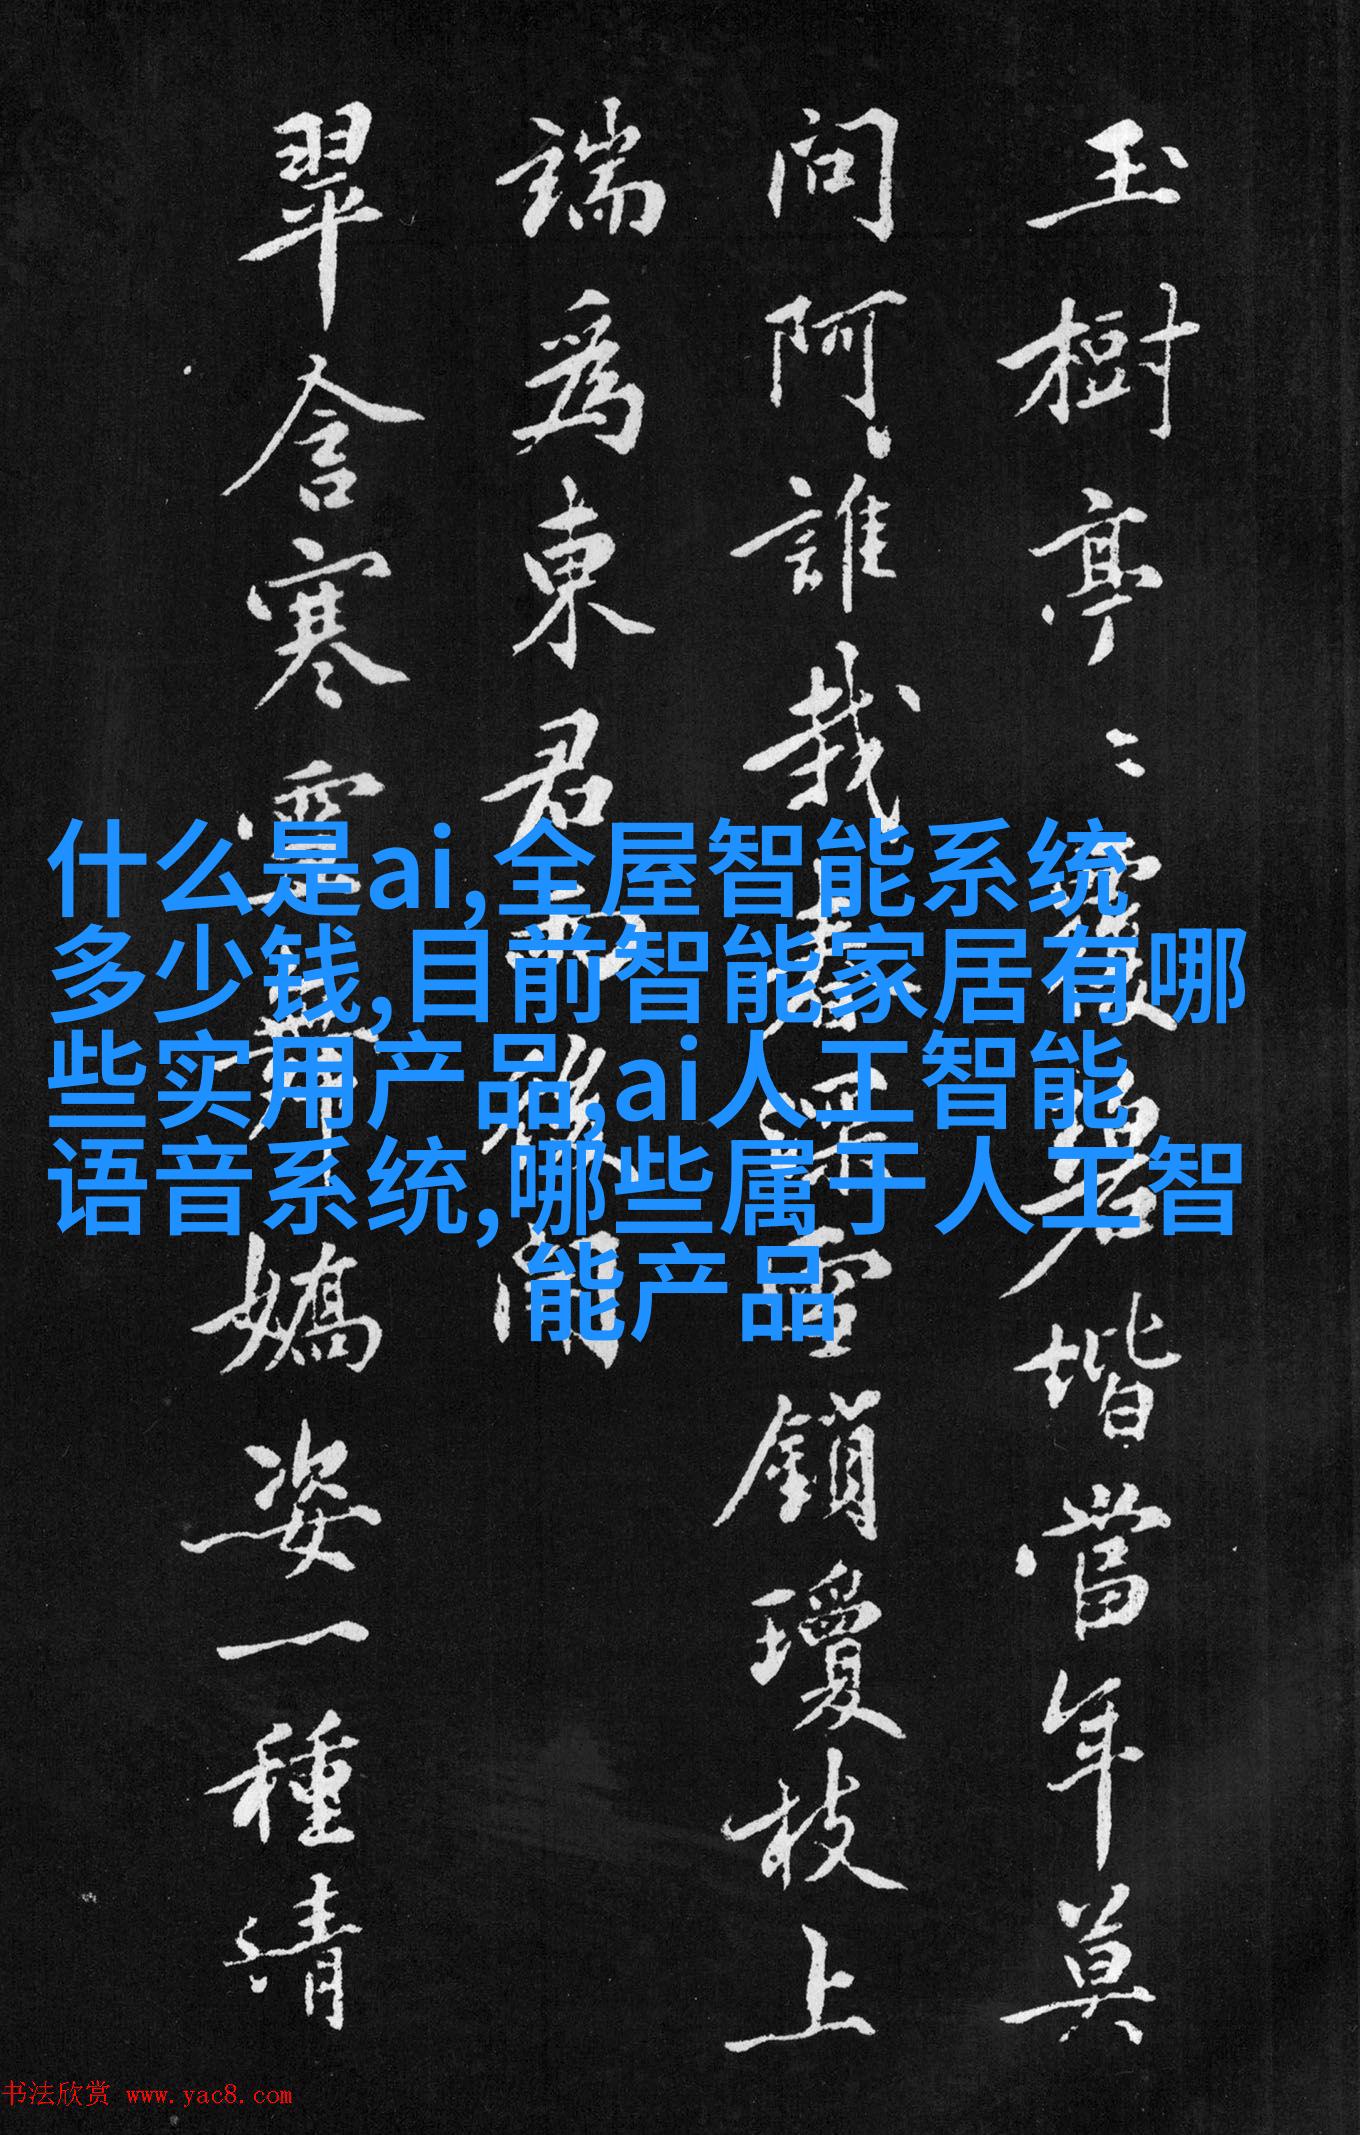 什么是ai,全屋智能系统
多少钱,目前智能家居有哪
些实用产品,ai人工智能
语音系统,哪些属于人工智
能产品
玉樹亭〻覆碧堦當年莫
問阿誰栽春深雪鎖瓊枝上
端為東君
翠含寒嬌姿一種清
书法欣赏 www.yac8.com